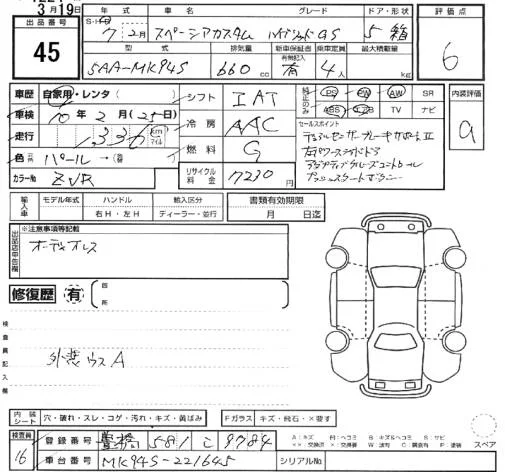 3月19日
出品番号 45
年式 車名 グレード ドア・形状 評価点
7 2月 スペーシアカスタム ハイブリッドGS 5 箱
型式 排気量 新車保証書 乗車定員 最大積載量
有無記入
5AA-MK94S 660 cc 有 4人 kg 6
車歴 自家用・レンタ( W ) シフト IAT 純正のみ PS PW AW SR 内装評価
ABS エアB TV ナビ
車検 10年2月(25日) 冷房 AAC セールスポイント a
走行 1,336 km マイル デュアルセンサーブレーキサポートII
右パワースライドドア
色 パール → ( ) 燃料 G アダプティブクルーズコントロール
プッシュスタートボタン
カラーNo ZVR リサイクル料金 7230円
輸入車 モデル年式 ハンドル 輸入区分 書類有効期限
右H・左H ディーラー・並行 月 日迄
出品店申告欄 ※注意事項等記載
オーディオレス
修復歴 有 箇所
検査員記入欄
外装ウスA
内装シート 穴・破れ・スレ・コゲ・汚れ・キズ・黄ばみ Fガラス キズ・飛石・×要す
検査員 16 登録番号 豊橋 581 9784
A:キズ スペア
車台番号 MK94S-221645 シリアルNo